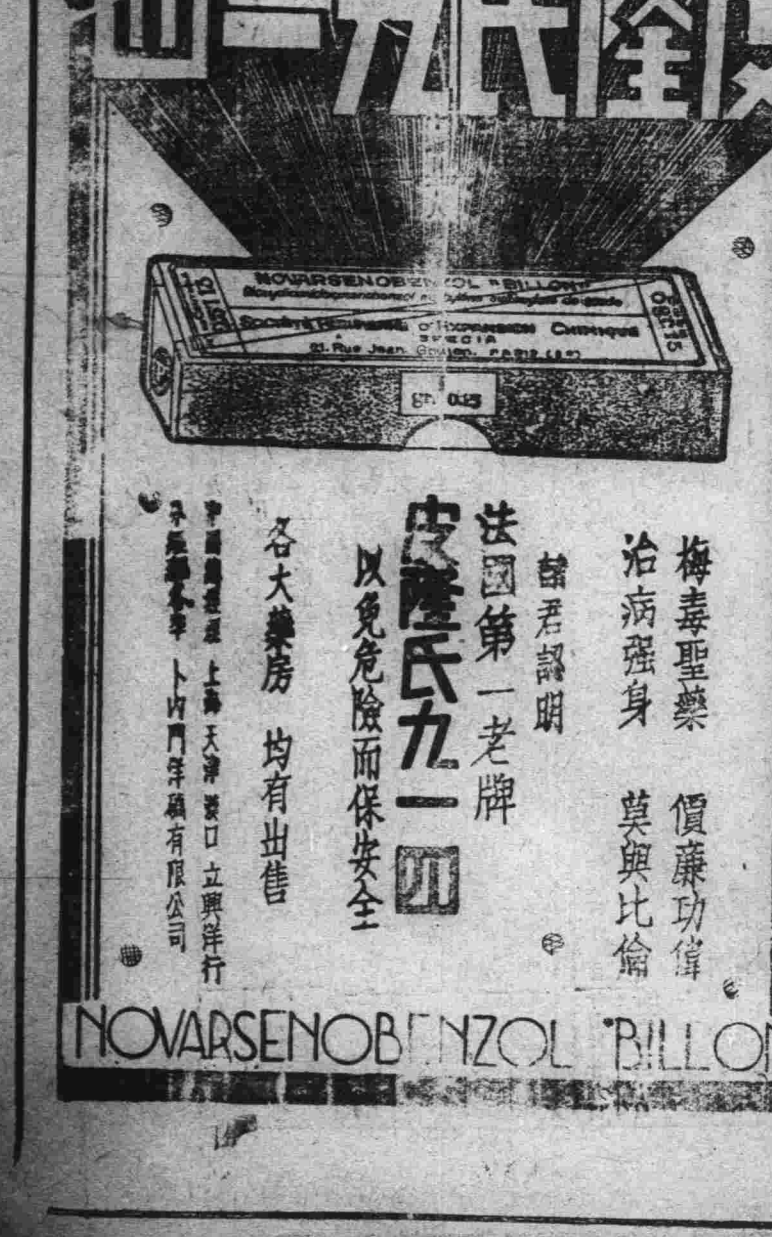 皮隆氏九一四
NOVARSENOBENZOL "BILLON"
SOCIÉTÉ PARISIENNE D'EXPANSION CHIMIQUE
SPECIA
21. Rue Jean Goujon. PARIS (8e)
gr. 0.15
梅毒聖藥 價廉功偉
治病强身 莫與比倫
諸君認明
法國第一老牌
皮隆氏九一四
以免危險而保安全
各大藥房 均有出售
上海 天津 漢口 立興洋行
卜內門洋鹼有限公司
NOVARSENOBENZOL "BILLON